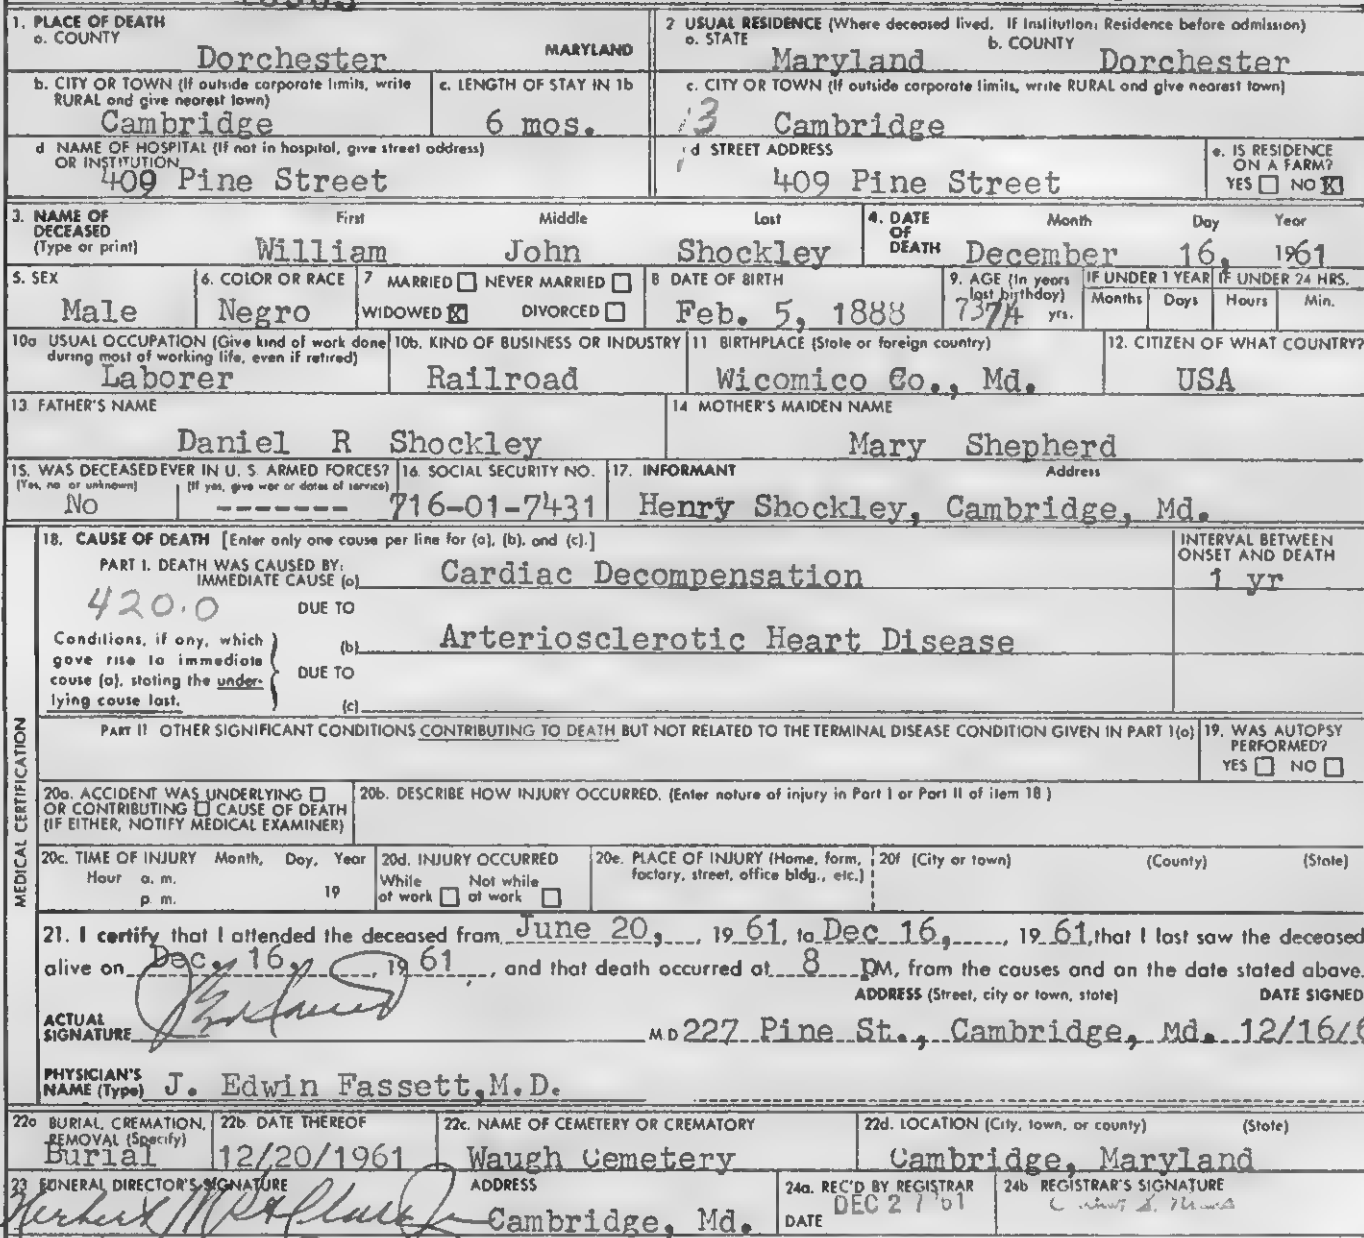 1. PLACE OF DEATH
a. COUNTY
Dorchester MARYLAND
2 USUAL RESIDENCE (Where deceased lived. If Institution: Residence before admission)
a. STATE b. COUNTY
Maryland Dorchester
b. CITY OR TOWN (If outside corporate limits, write
RURAL and give nearest town)
Cambridge
c. LENGTH OF STAY IN 1b
6 mos.
c. CITY OR TOWN (If outside corporate limits, write RURAL and give nearest town)
13 Cambridge
d NAME OF HOSPITAL (If not in hospital, give street address)
OR INSTITUTION
409 Pine Street
d STREET ADDRESS
409 Pine Street
e. IS RESIDENCE
ON A FARM?
YES ☐ NO ☒
3. NAME OF
DECEASED
(Type or print)
First Middle Last
William John Shockley
4. DATE
OF
DEATH
Month Day Year
December 16, 1961
5. SEX
Male
6. COLOR OR RACE
Negro
7 MARRIED ☐ NEVER MARRIED ☐
WIDOWED ☒ DIVORCED ☐
8 DATE OF BIRTH
Feb. 5, 1888
9. AGE (In years
last birthday)
73 74 yrs.
IF UNDER 1 YEAR
Months Days
IF UNDER 24 HRS.
Hours Min.
10a USUAL OCCUPATION (Give kind of work done
during most of working life, even if retired)
Laborer
10b. KIND OF BUSINESS OR INDUSTRY
Railroad
11 BIRTHPLACE (State or foreign country)
Wicomico Co., Md.
12. CITIZEN OF WHAT COUNTRY?
USA
13 FATHER'S NAME
Daniel R Shockley
14 MOTHER'S MAIDEN NAME
Mary Shepherd
15. WAS DECEASED EVER IN U. S. ARMED FORCES?
(Yes, no or unknown) (If yes, give war or dates of service)
No -------
16. SOCIAL SECURITY NO.
716-01-7431
17. INFORMANT Address
Henry Shockley, Cambridge, Md.
18. CAUSE OF DEATH [Enter only one cause per line for (a), (b), and (c).]
INTERVAL BETWEEN
ONSET AND DEATH
PART I. DEATH WAS CAUSED BY:
IMMEDIATE CAUSE (a) Cardiac Decompensation 1 yr
420.0 DUE TO
Conditions, if any, which
gave rise to immediate
cause (a), stating the under-
lying cause last.
(b) Arteriosclerotic Heart Disease
DUE TO
(c)
MEDICAL CERTIFICATION
PART II OTHER SIGNIFICANT CONDITIONS CONTRIBUTING TO DEATH BUT NOT RELATED TO THE TERMINAL DISEASE CONDITION GIVEN IN PART I(a)
19. WAS AUTOPSY
PERFORMED?
YES ☐ NO ☐
20a. ACCIDENT WAS UNDERLYING ☐
OR CONTRIBUTING ☐ CAUSE OF DEATH
(IF EITHER, NOTIFY MEDICAL EXAMINER)
20b. DESCRIBE HOW INJURY OCCURRED. (Enter nature of injury in Part I or Part II of item 18)
20c. TIME OF INJURY Month, Day, Year
Hour a. m.
p. m. 19
20d. INJURY OCCURRED
While Not while
at work ☐ at work ☐
20e. PLACE OF INJURY (Home, farm,
factory, street, office bldg., etc.)
20f (City or town) (County) (State)
21. I certify that I attended the deceased from June 20, 1961, to Dec 16, 1961, that I last saw the deceased
alive on Dec. 16, 1961, and that death occurred at 8 PM, from the causes and on the date stated above.
ADDRESS (Street, city or town, state) DATE SIGNED
ACTUAL
SIGNATURE M D 227 Pine St., Cambridge, Md. 12/16/6
PHYSICIAN'S
NAME (Type) J. Edwin Fassett,M.D.
22a BURIAL, CREMATION,
REMOVAL (Specify)
Burial
22b. DATE THEREOF
12/20/1961
22c. NAME OF CEMETERY OR CREMATORY
Waugh Cemetery
22d. LOCATION (City, town, or county) (State)
Cambridge, Maryland
23 FUNERAL DIRECTOR'S SIGNATURE ADDRESS
Cambridge, Md.
24a. REC'D BY REGISTRAR
DATE DEC 27 '61
24b REGISTRAR'S SIGNATURE